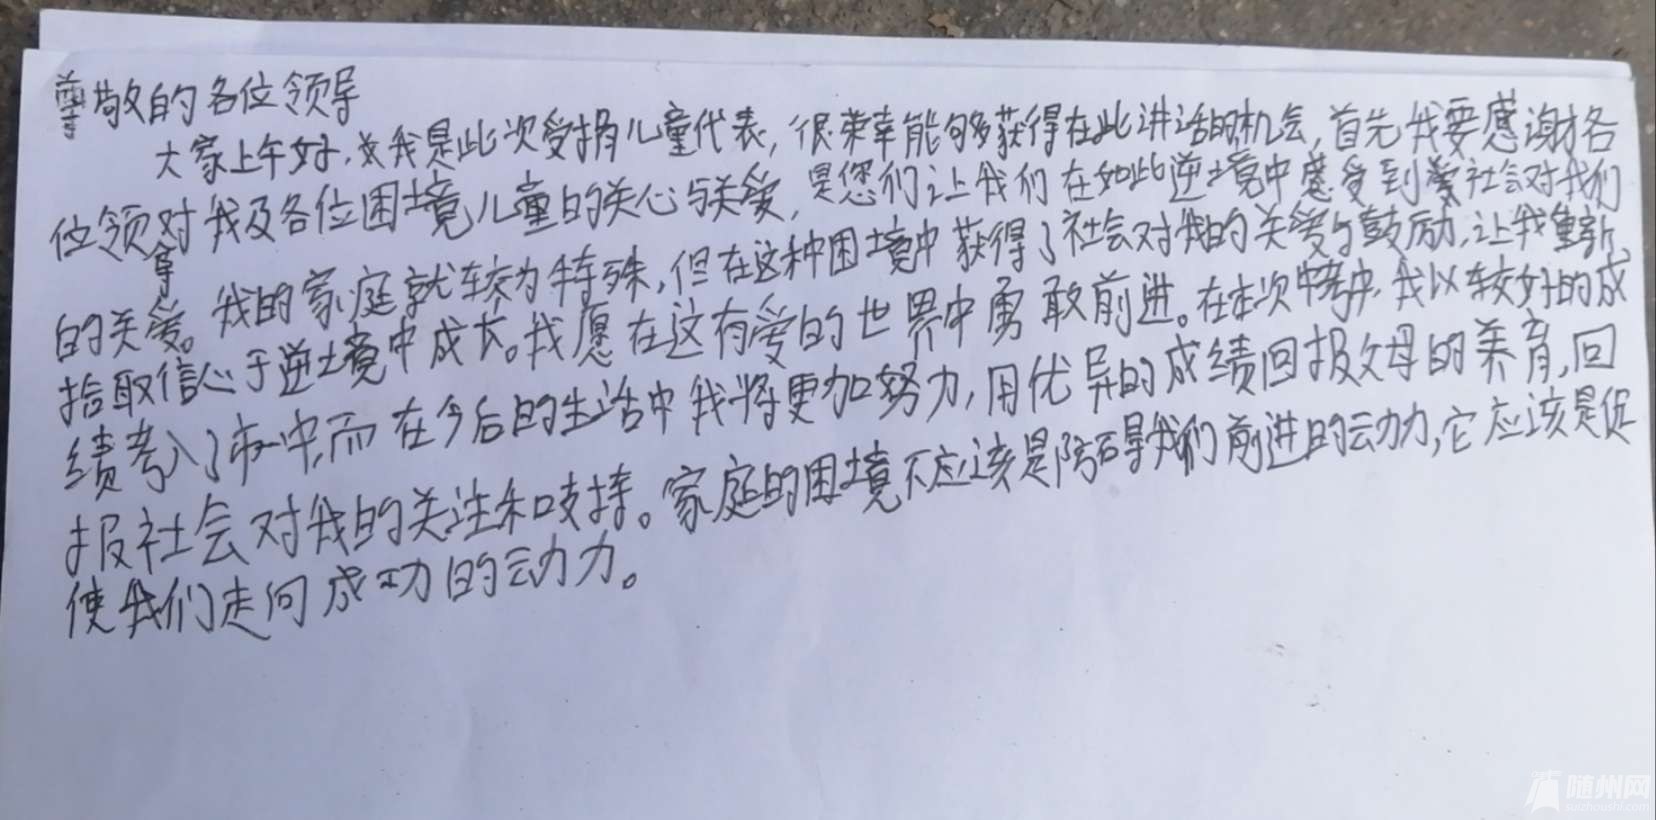 尊敬的各位领导
大家上午好,我是此次受捐儿童代表,很荣幸能够获得在此讲话的机会,首先我要感谢各
位领导对我及各位困境儿童的关心与关爱,是您们让我们在如此逆境中感受到社会对我们
的关爱。我的家庭就较为特殊,但在这种困境中获得了社会对我的关爱与鼓励,让我重新
拾取信心于逆境中成长。我愿在这有爱的世界中勇敢前进。在本次中考中,我以较好的成
绩考入了市一中,而在今后的生活中我将更加努力,用优异的成绩回报父母的养育,回
报社会对我的关注和支持。家庭的困境不应该是阻碍我们前进的动力,它应该是促
使我们走向成功的动力。
随州网
suizhoushi.com